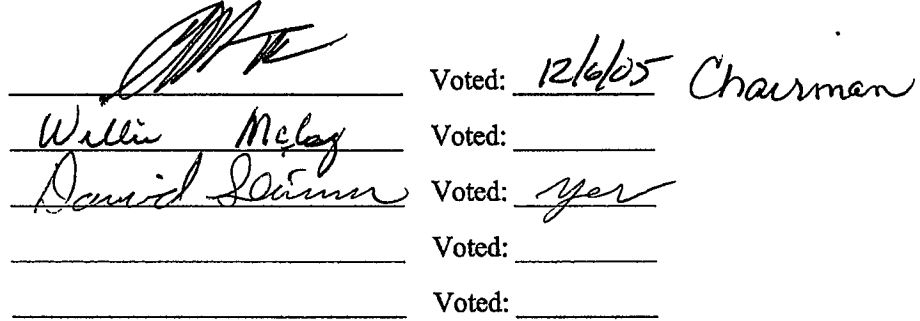 Voted: 12/6/05 Chairman
Willie McCoy Voted:
David Voted: Yes
Voted:
Voted: